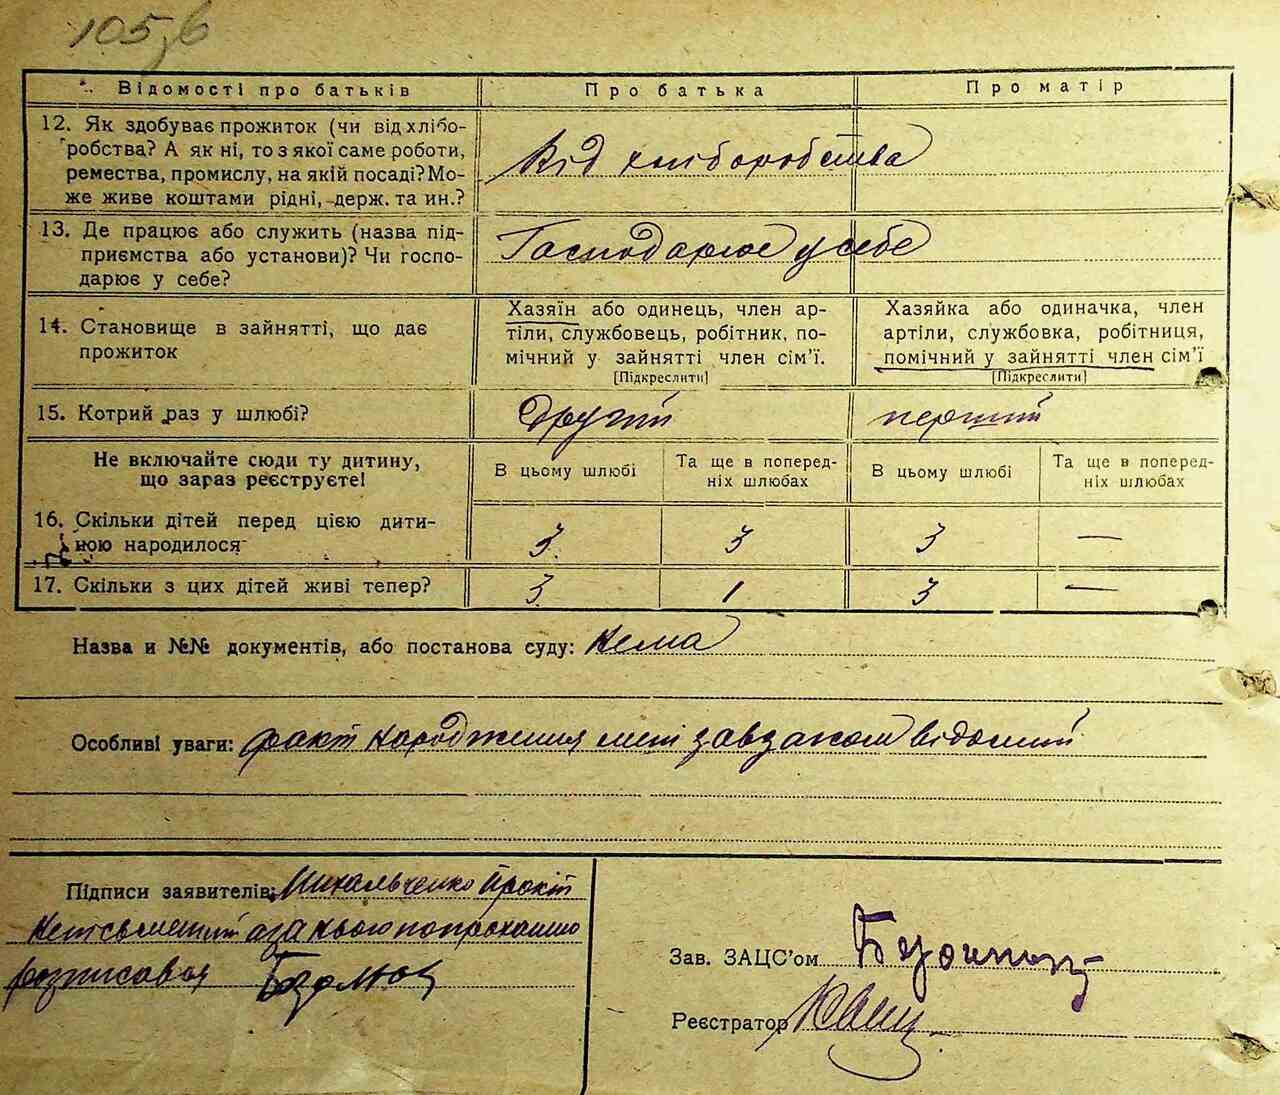 105
Відомості про батьків Про батька Про матір
12. Як здобуває прожиток (чи від хлібо-
робства? А як ні, то з якої саме роботи,
ремества, промислу, на якій посаді? Мо-
же живе коштами рідні, держ. та ин.?
Від хліборобства
13. Де працює або служить (назва під-
приємства або установи)? Чи госпо-
дарює у себе?
Господарює у себе
14. Становище в зайнятті, що дає
прожиток
Хазяїн або одинець, член ар-
тіли, службовець, робітник, по-
мічний у зайнятті член сім’ї.
[Підкреслити]
Хазяйка або одиначка, член
артіли, службовка, робітниця,
помічний у зайнятті член сім’ї
[Підкреслити]
15. Котрий раз у шлюбі? Другий перший
Не включайте сюди ту дитину,
що зараз реєструєте!
В цьому шлюбі
Та ще в поперед-
ніх шлюбах
В цьому шлюбі
Та ще в поперед-
ніх шлюбах
16. Скільки дітей перед цією дити-
ною народилося 3 3 3 —
17. Скільки з цих дітей живі тепер? 3 1 3 —
Назва и №№ документів, або постанова суду: Нема
Особливі уваги: факт народження мені завзаком відомий
Підписи заявителів: Михальченко Прокіп
Неписьменний а за нього попроханню
розписався
Зав. ЗАЦС’ом
Реєстратор